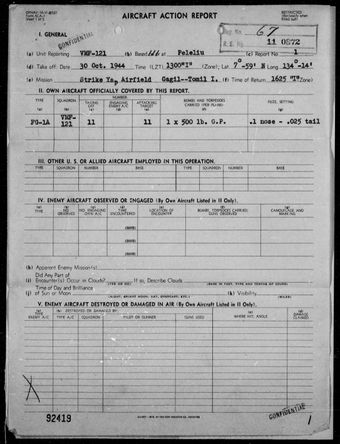 AIRCRAFT ACTION REPORT
RESTRICTED
67
11 0872
I. GENERAL
CONFIDENTIAL
(a) Unit Reporting VMF-121 (b) Based at Peleliu (c) Report No. 1
(d) Take off: Date 30 Oct. 1944 Time (LZT) 1300"I" (Zone); Lat. 7°-59' N Long. 134°-14'
(e) Mission Strike Yap Airfield Gagil-Tomil I. (f) Time of Return 1625 "I" (Zone)
II. OWN AIRCRAFT OFFICIALLY COVERED BY THIS REPORT.
TYPE SQUADRON NUMBER TAKING OFF ENGAGING ENEMY A/C ATTACKING TARGET BOMBS AND TORPEDOES CARRIED (PER PLANE) FUZE, SETTING
FG-1A VMF-121 11 11 1 x 500 lb. G.P. .1 nose - .025 tail
III. OTHER U. S. OR ALLIED AIRCRAFT EMPLOYED IN THIS OPERATION.
TYPE SQUADRON NUMBER BASE TYPE SQUADRON NUMBER BASE
IV. ENEMY AIRCRAFT OBSERVED OR ENGAGED (By Own Aircraft Listed in II Only).
(a) TYPE (b) NO. OBSERVED (c) NO. ENGAGING OWN A/C (d) TIME ENCOUNTERED (e) LOCATION OF ENCOUNTER (f) BOMBS, TORPEDOES CARRIED; GUNS OBSERVED (g) CAMOUFLAGE AND MARKING
(ZONE)
(ZONE)
(ZONE)
(h) Apparent Enemy Mission(s)
Did Any Part of
(i) Encounter(s) Occur in Clouds? If so, Describe Clouds
Time of Day and Brilliance
(j) of Sun or Moon (k) Visibility
(MILES)
V. ENEMY AIRCRAFT DESTROYED OR DAMAGED IN AIR (By Own Aircraft Listed in II Only).
(a) ENEMY A/C (b) DESTROYED OR DAMAGED BY: TYPE A/C SQUADRON PILOT OR GUNNER GUNS USED (c) WHERE HIT, ANGLE (d) DAMAGE CLAIMED
X
92419
CONFIDENTIAL
1